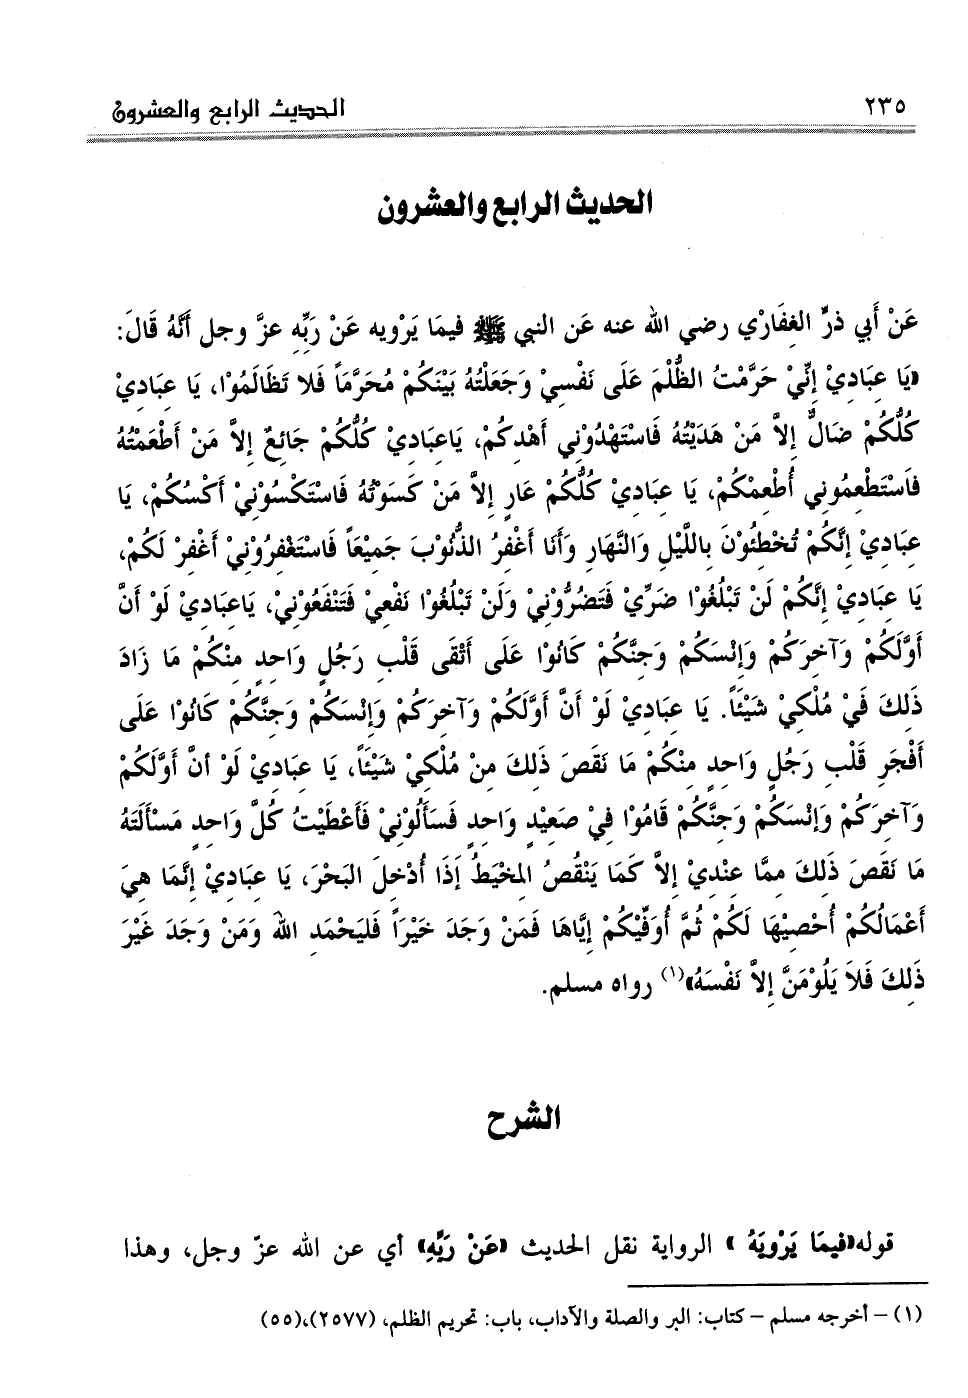 ٢٣٥ الحديث الرابع والعشرون
الحديث الرابع والعشرون
عَنْ أَبي ذرٍّ الغِفَارْي رضي الله عنه عَن النبي ﷺ فيمَا يَرْويه عَنْ رَبِّهِ عزَّ وجل أَنَّهُ قَالَ:
«يَا عِبَادِيْ إِنِّيْ حَرَّمْتُ الظُّلْمَ عَلَى نَفْسِيْ وَجَعَلْتُهُ بَيْنَكُمْ مُحَرَّمَاً فَلا تَظَالَمُوْا، يَا عِبَادِيْ
كُلُّكُمْ ضَالٌّ إِلاَّ مَنْ هَدَيْتُهُ فَاسْتَهْدُوْنِي أَهْدِكُمْ، يَاعِبَادِيْ كُلُّكُمْ جَائِعٌ إِلاَّ مَنْ أَطْعَمْتُهُ
فَاسْتَطْعِمُونِي أُطْعِمْكُمْ، يَا عِبَادِيْ كُلُّكُمْ عَارٍ إِلاَّ مَنْ كَسَوْتُهُ فَاسْتَكْسُوْنِيْ أَكْسُكُمْ، يَا
عِبَادِيْ إِنَّكُمْ تُخْطِئُوْنَ بِاللَّيْلِ وَالنَّهَارِ وَأَنَا أَغْفِرُ الذُّنُوْبَ جَمِيْعَاً فَاسْتَغْفِرُوْنِيْ أَغْفِرْ لَكُمْ،
يَا عِبَادِيْ إِنَّكُمْ لَنْ تَبْلُغُوْا ضَرِّيْ فَتَضُرُّوْنِيْ وَلَنْ تَبْلُغُوْا نَفْعِيْ فَتَنْفَعُوْنِيْ، يَاعِبَادِيْ لَوْ أَنَّ
أَوَّلَكُمْ وَآخِرَكُمْ وَإِنْسَكُمْ وَجِنَّكُمْ كَانُوْا عَلَى أَتْقَى قَلْبِ رَجُلٍ وَاحِدٍ مِنْكُمْ مَا زَادَ
ذَلِكَ فَيْ مُلْكِيْ شَيْئَاً. يَا عِبَادِيْ لَوْ أَنَّ أَوَّلَكُمْ وَآخِرَكُمْ وَإِنْسَكُمْ وَجِنَّكُمْ كَانُوْا عَلَى
أَفْجَرِ قَلْبِ رَجُلٍ وَاحِدٍ مِنْكُمْ مَا نَقَصَ ذَلِكَ مِنْ مُلْكِيْ شَيْئَاً، يَا عِبَادِيْ لَوْ أنَّ أَوَّلَكُمْ
وَآخِرَكُمْ وَإِنْسَكُمْ وَجِنَّكُمْ قَامُوْا فِيْ صَعِيْدٍ وَاحِدٍ فَسَأَلُوْنِيْ فَأَعْطَيْتُ كُلَّ وَاحِدٍ مَسْأَلَتَهُ
مَا نَقَصَ ذَلِكَ مِمَّا عِنْدِيْ إِلاَّ كَمَا يَنْقُصُ المِخْيَطُ إِذَا أُدْخِلَ البَحْرَ، يَا عِبَادِيْ إِنَّمَا هِيَ
أَعْمَالُكُمْ أُحْصِيْهَا لَكُمْ ثُمَّ أُوَفِّيْكُمْ إِيَّاهَا فَمَنْ وَجَدَ خَيْرَاً فَليَحْمَدِ اللهَ وَمَنْ وَجَدَ غَيْرَ
ذَلِكَ فَلاَ يَلُوْمَنَّ إِلاَّ نَفْسَهُ»(١) رواه مسلم.
الشرح
قوله«فيمَا يَرْويَهُ » الرواية نقل الحديث «عَنْ رَبِّهِ» أي عن الله عزّ وجل، وهذا
(١) – أخرجه مسلم – كتاب: البر والصلة والآداب، باب: تحريم الظلم، (٢٥٧٧)،(٥٥)